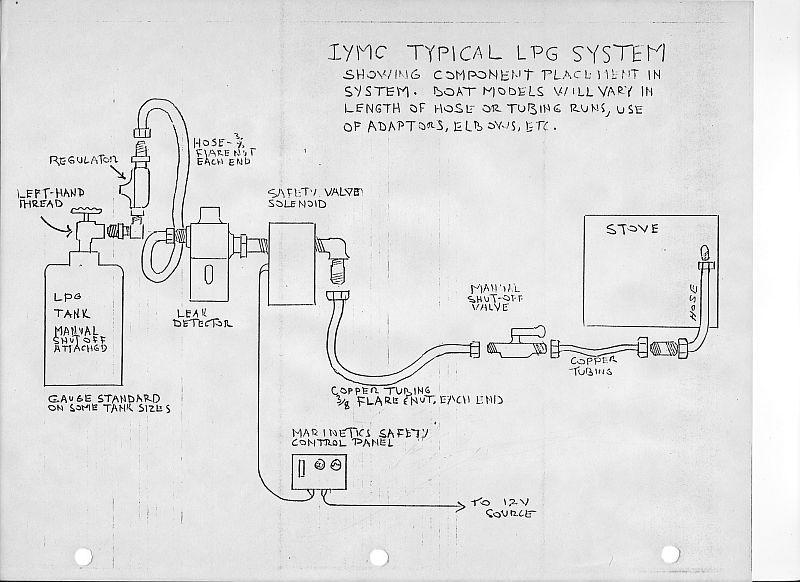 IYMC TYPICAL LPG SYSTEM
SHOWING COMPONENT PLACEMENT IN
SYSTEM. BOAT MODELS WILL VARY IN
LENGTH OF HOSE OR TUBING RUNS, USE
OF ADAPTORS, ELBOWS, ETC.
HOSE-3/8
FLARE NUT
EACH END
REGULATOR
LEFT-HAND
THREAD
SAFETY VALVE
SOLENOID
STOVE
HOSE
LPG
TANK
MANUAL
SHUT OFF
ATTACHED
LEAK
DETECTOR
MANUAL
SHUT-OFF
VALVE
COPPER
TUBING
GAUGE STANDARD
ON SOME TANK SIZES
COPPER TUBING
3/8 FLARE NUT, EACH END
MARINETICS SAFETY
CONTROL PANEL
TO 12V
SOURCE